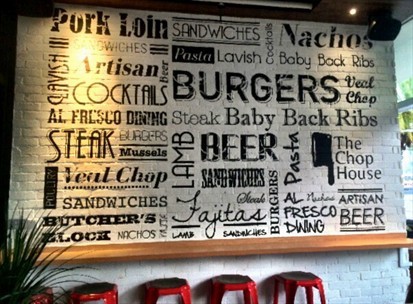 Pork Loin
SANDWICHES
Cocktails
Nachos
SANDWICHES
Pasta
Lavish
Baby Back Ribs
LAVISH
Artisan
Beer
BURGERS
Veal
Chop
COCKTAILS
AL FRESCO DINING
Steak
Baby Back Ribs
STEAK
BURGERS
Mussels
LAMB
BEER
Pasta
The
Chop
House
Veal Chop
SANDWICHES
BURGERS
SANDWICHES
Steak
Fajitas
AL
Nachos
FRESCO
DINING
ARTISAN
BEER
BUTCHER'S
BLOCK
NACHOS
LAMB
SANDWICHES